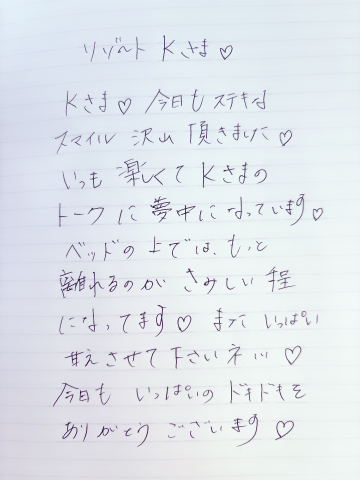 リゾート Kさま♡
Kさま♡ 今日も ステキな
スマイル 沢山 頂きました♡
いつも 楽しくて Kさまの
トークに 夢中に なっています♡
ベッドの 上では、もっと
離れるのが さみしい 程
になってます♡ また いっぱい
甘え させて 下さいネ...♡
今日も いっぱいの ドキドキを
ありがとう ございます♡